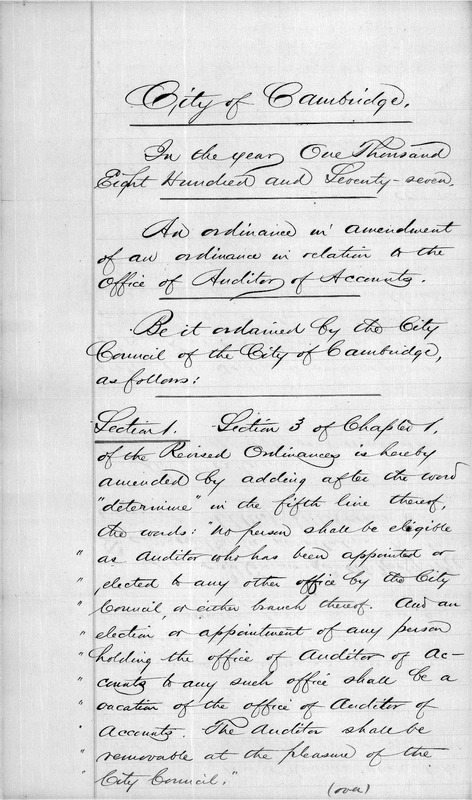 City of Cambridge.
In the year One Thousand
Eight Hundred and Seventy-seven.
An ordinance in amendment
of an ordinance in relation to the
Office of Auditor of Accounts.
Be it ordained by the City
Council of the City of Cambridge,
as follows:
Section 1. Section 3 of Chapter 1,
of the Revised Ordinances is hereby
amended by adding after the word
"determine" in the fifth line thereof,
the words: "No person shall be eligible
" as Auditor who has been appointed or
" elected to any other office by the City
" Council, or either branch thereof. And an
" election or appointment of any person
" holding the office of Auditor of Ac-
" counts to any such office shall be a
" vacation of the office of Auditor of
" Accounts. The Auditor shall be
" removable at the pleasure of the
" City Council."
(over)